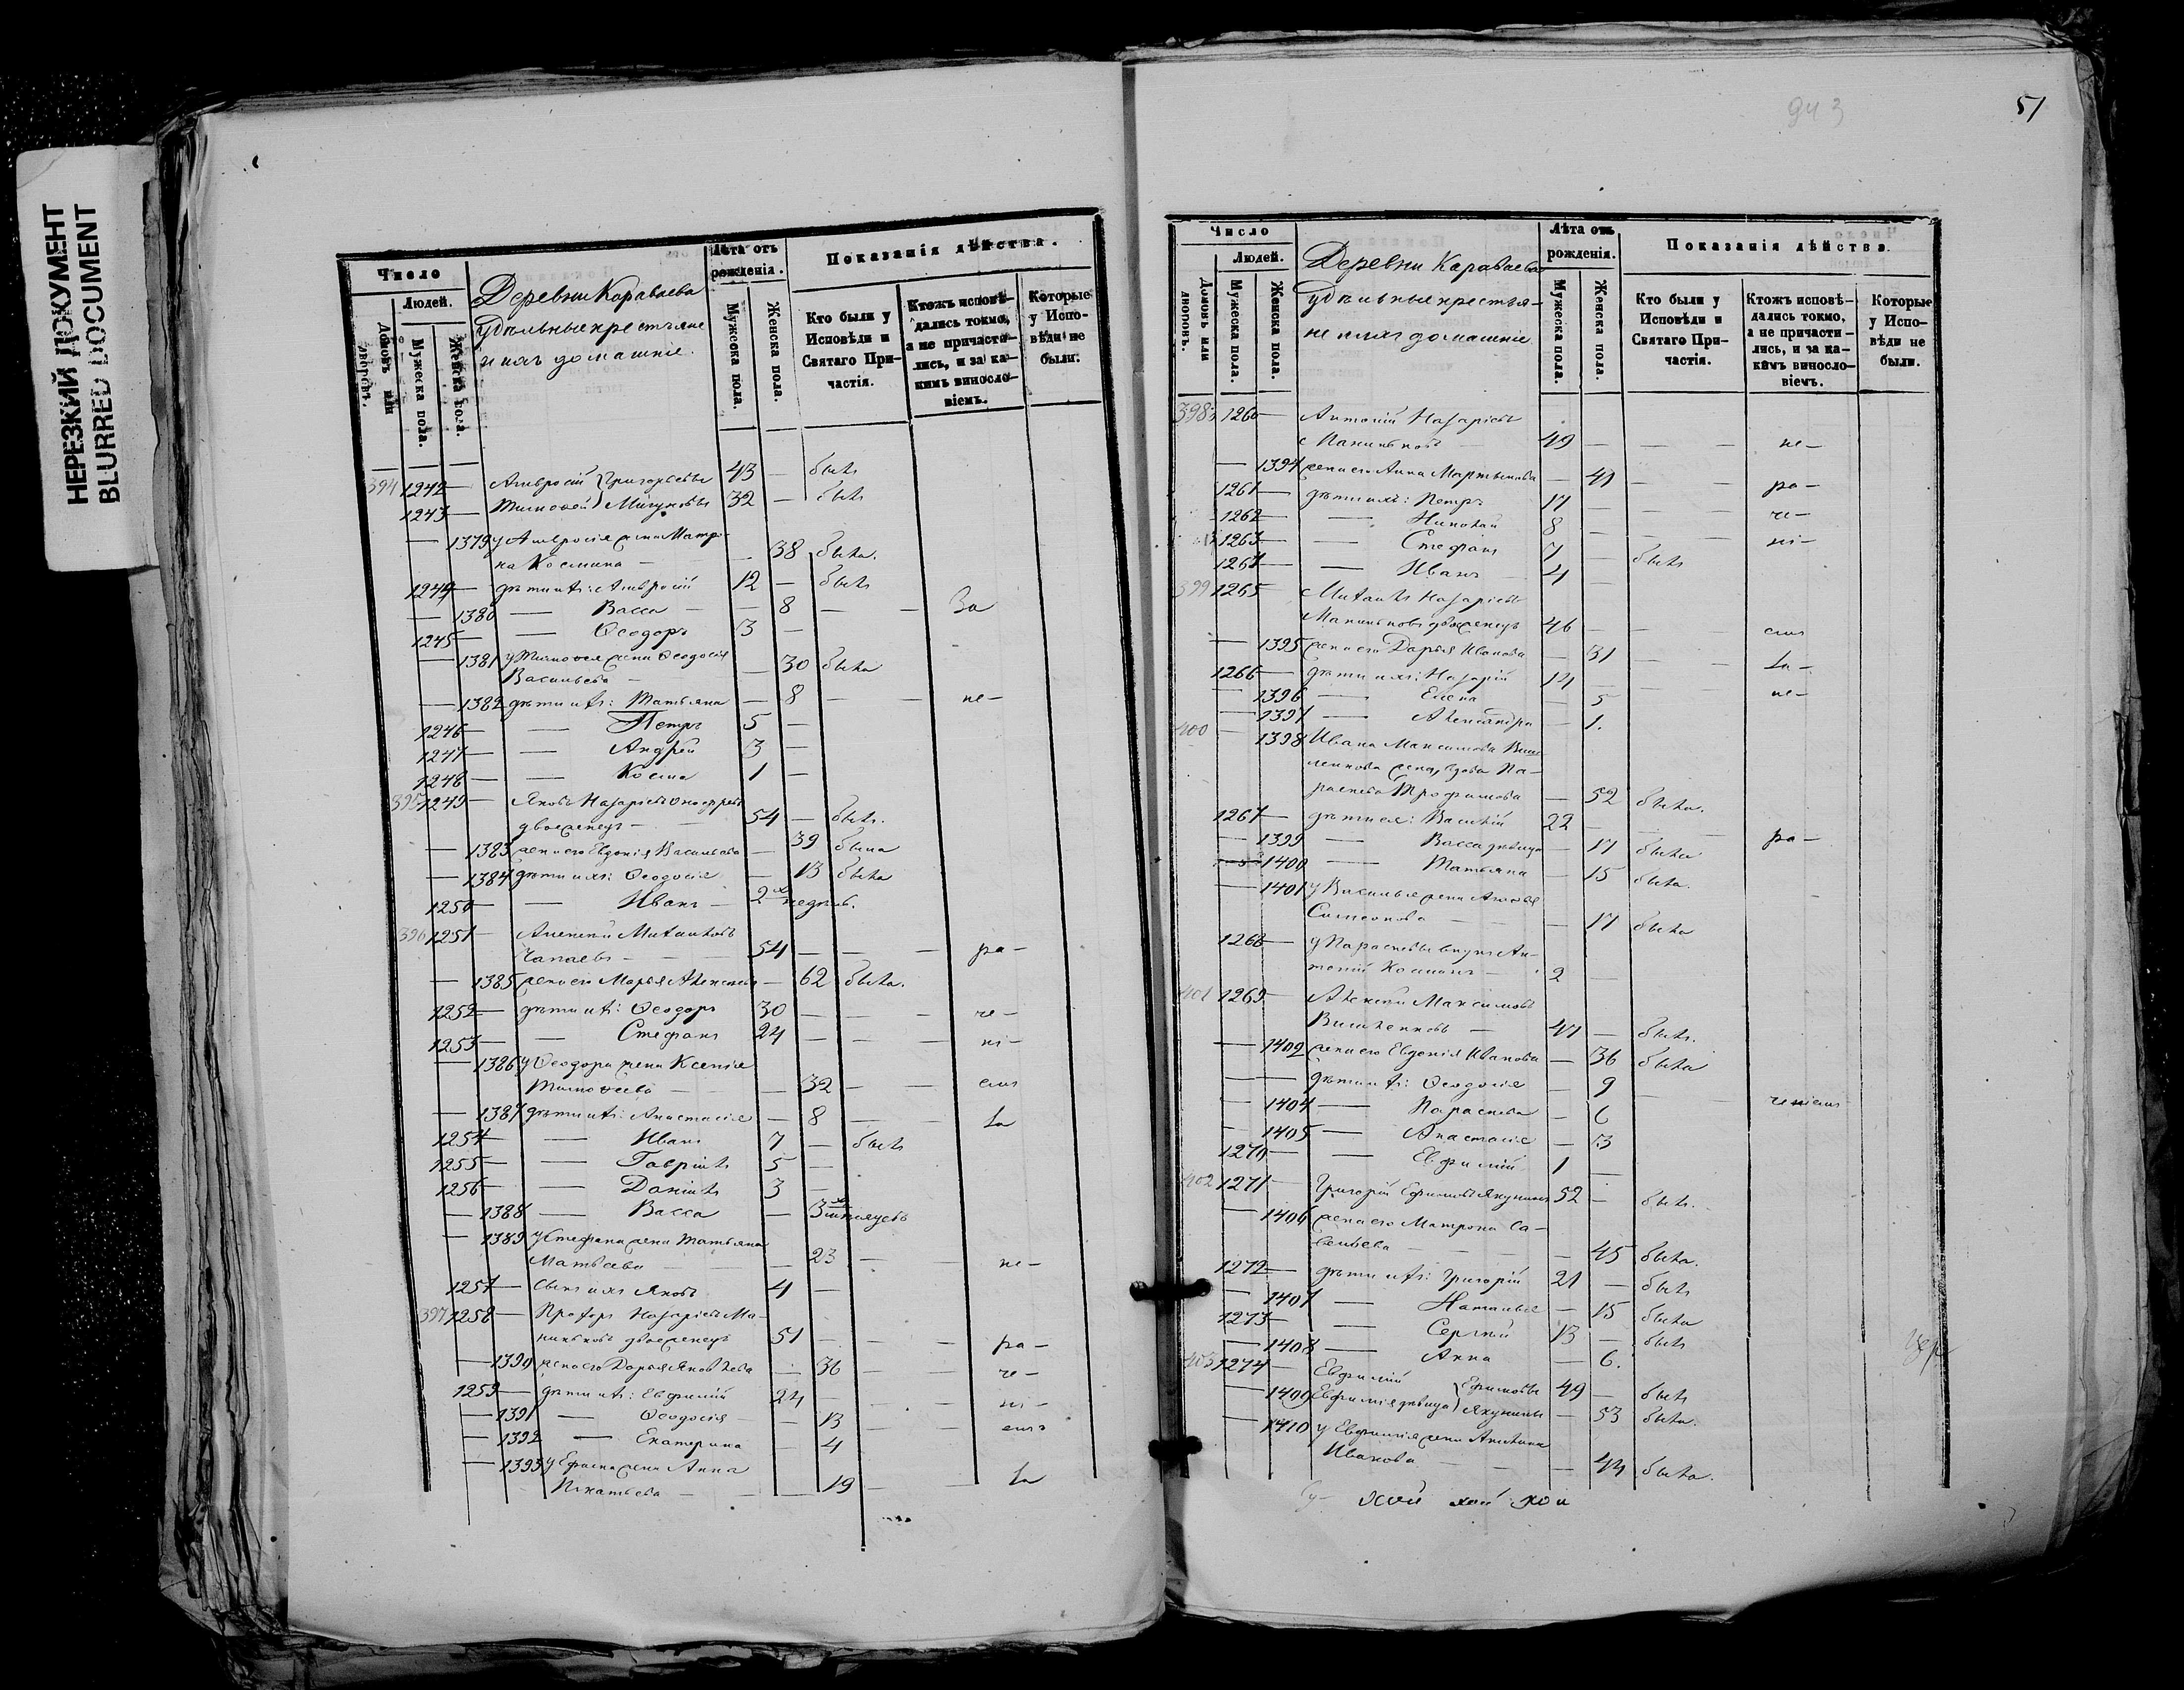 НЕРЕЗКИЙ ДОКУМЕНТ
BLURRED DOCUMENT
Число
Людей.
Домовъ или дворовъ.
Мужеска пола.
Женска пола.
Деревни Караваева
удѣльные крестьяне
и ихъ домашніе.
Лѣта отъ рожденія.
Мужеска пола.
Женска пола.
Показанія дѣйства.
Кто были у Исповѣди и Святаго Причастія.
Ктожъ исповѣдались токмо, а не причастились, и за какимъ винословіемъ.
Которые у Исповѣди не были.
394 1242 — Амвросій Григорьевы 43 — былъ
1243 — Тимоѳей Мичуновы 32 — былъ
— 1379 у Амвросія жена Матро-
на Космина — — 38 была.
1244 — дѣти ихъ: Амвросій 12 — былъ
— 1380 — Васса — — 8 — — За
1245 — — Ѳеодоръ 3 —
— 1381 у Тимоѳея жена Ѳеодосія
Васильева — — 30 была
— 1382 дѣти ихъ: Татьяна — 8 — — не—
1246 — — Петръ 5 —
1247 — — Андрей 3 —
1248 — — Косма 1 —
395 1249 — Яковъ Назарьевъ
двоеженецъ — 54 — былъ.
— 1383 жена его Евдокія Васильева — 39 была
— 1384 дѣти ихъ: Ѳеодосія — 13 была
1250 — — Иванъ — 2 х недѣль.
396 1251 — Алексѣй Михайловъ
Чапаевъ — 54 — — — ра—
— 1385 жена его Марья Алексѣева — 62 была.
1252 — дѣти ихъ: Ѳеодоръ 30 — — — че—
1253 — — Стефанъ 24 — — — ні—
— 1386 у Ѳеодора жена Ксенія
Тимоѳеева — — 32 — — емъ
— 1387 дѣти ихъ: Анастасія — 8 — — за
1254 — — Иванъ 7 — былъ
1255 — — Гавріилъ 5 —
1256 — — Даніилъ 3 —
— 1388 — Васса — 3
— 1389 у Стефана жена Татьяна
Матвѣева — — 23 — — не—
1257 — Сынъ ихъ Яковъ 4 —
397 1258 — Прохоръ Назарьевъ Ма-
никовъ двоеженецъ 51 — — — ра—
— 1390 жена его Дарья Яковлева — 36 — — че—
1259 — дѣти ихъ: Евфимій 24 — — — ні—
— 1391 — Ѳеодосія — — 13 — — емъ
— 1392 — Екатерина 4
— 1393 у Ефима жена Анна
Игнатьева — — 19 — — за
943
51
Число
Людей.
Домовъ или дворовъ.
Мужеска пола.
Женска пола.
Деревни Караваева
удѣльные крестья-
не и ихъ домашніе
Лѣта отъ рожденія.
Мужеска пола.
Женска пола.
Показанія дѣйства.
Кто были у Исповѣди и Святаго Причастія.
Ктожъ исповѣдались токмо, а не причастились, и за какимъ винословіемъ.
Которые у Исповѣди не были.
398 1260 — Антоній Назарьевъ
49 — — — не—
— 1394 жена его Анна Мартынова — 41 — — ра—
1261 — дѣти ихъ: Петръ 17 — — — че—
1262 — — Николай 8 — — — ні—
1263 — — Стефанъ 7 — былъ
1264 — — Иванъ 4 —
399 1265 — Михаилъ Назарьевъ
Маниковъ двоеженецъ 46 — — — емъ
— 1395 жена его Дарья Иванова — 31 — — за—
1266 — дѣти ихъ: Назарій 14 — — — не—
— 1396 — Елена — 5
— 1397 — Александра — 1.
400 — 1398 Ивана Максимова
жена, вдова Па-
раскева Трофимова — 52 была.
1267 — дѣти ея: Василій 22 — — — ра—
— 1399 — Васса дѣвица — 17 была
— 1400 — Татьяна — 15 была.
— 1401 у Василья жена
Симеонова — — 17 была
1268 — у Параскевы внукъ Ан-
тоній Косминъ — 2 —
401 1269 — Алексѣй Максимовъ
Вишленковъ — 47 — былъ.
— 1402 жена его Евдокія Иванова — 36 была
— — дѣти ихъ: Ѳеодосія — 9 — — ченіемъ
— 1404 — Параскева — 6
— 1405 — Анастасія — 3
1270 — — Евфимій 1 —
402 1271 — Григорій Ефимовъ Якунинъ 52 — былъ.
— 1406 жена его Матрона Са-
вельева — — 45 была.
1272 — дѣти ихъ: Григорій 21 — былъ
— 1407 — Наталья — 15 была
1273 — — Сергѣй 13 — былъ
— 1408 — Анна — 6.
403 1274 — Евфимій Ефимовы 49 — былъ
— 1409 Евфимія дѣвица Якунины — 53 была.
— 1410 у Евфимія жена Акилина
Иванова — — 44 была.